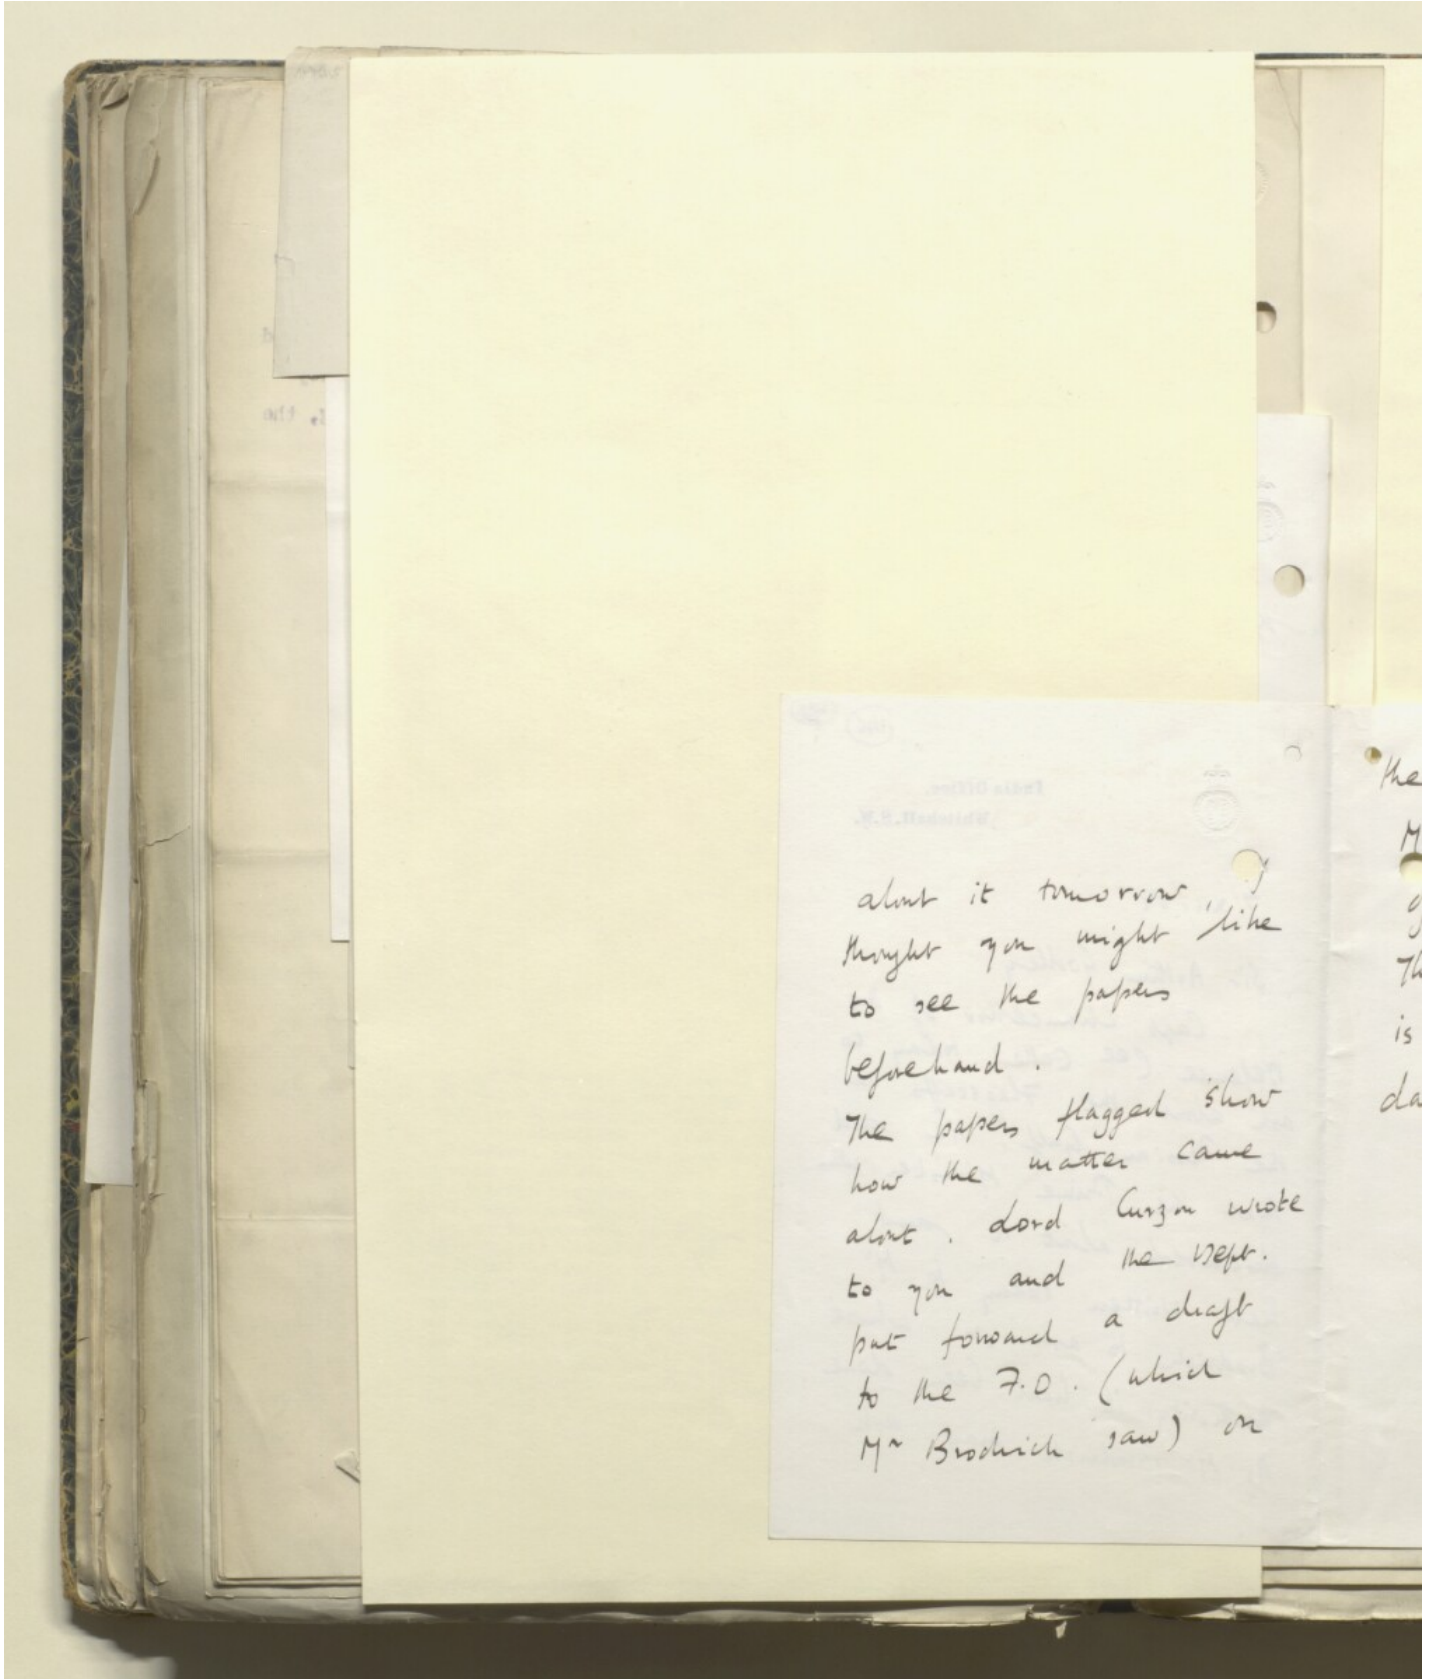 about it tomorrow, I
thought you might like
to see the papers
beforehand.
The papers flagged show
how the matter came
about. Lord Curzon wrote
to you and the Dept.
put forward a draft
to the F.O. (which
Mr Brodrick saw) on
the
M
g
Th
is
da